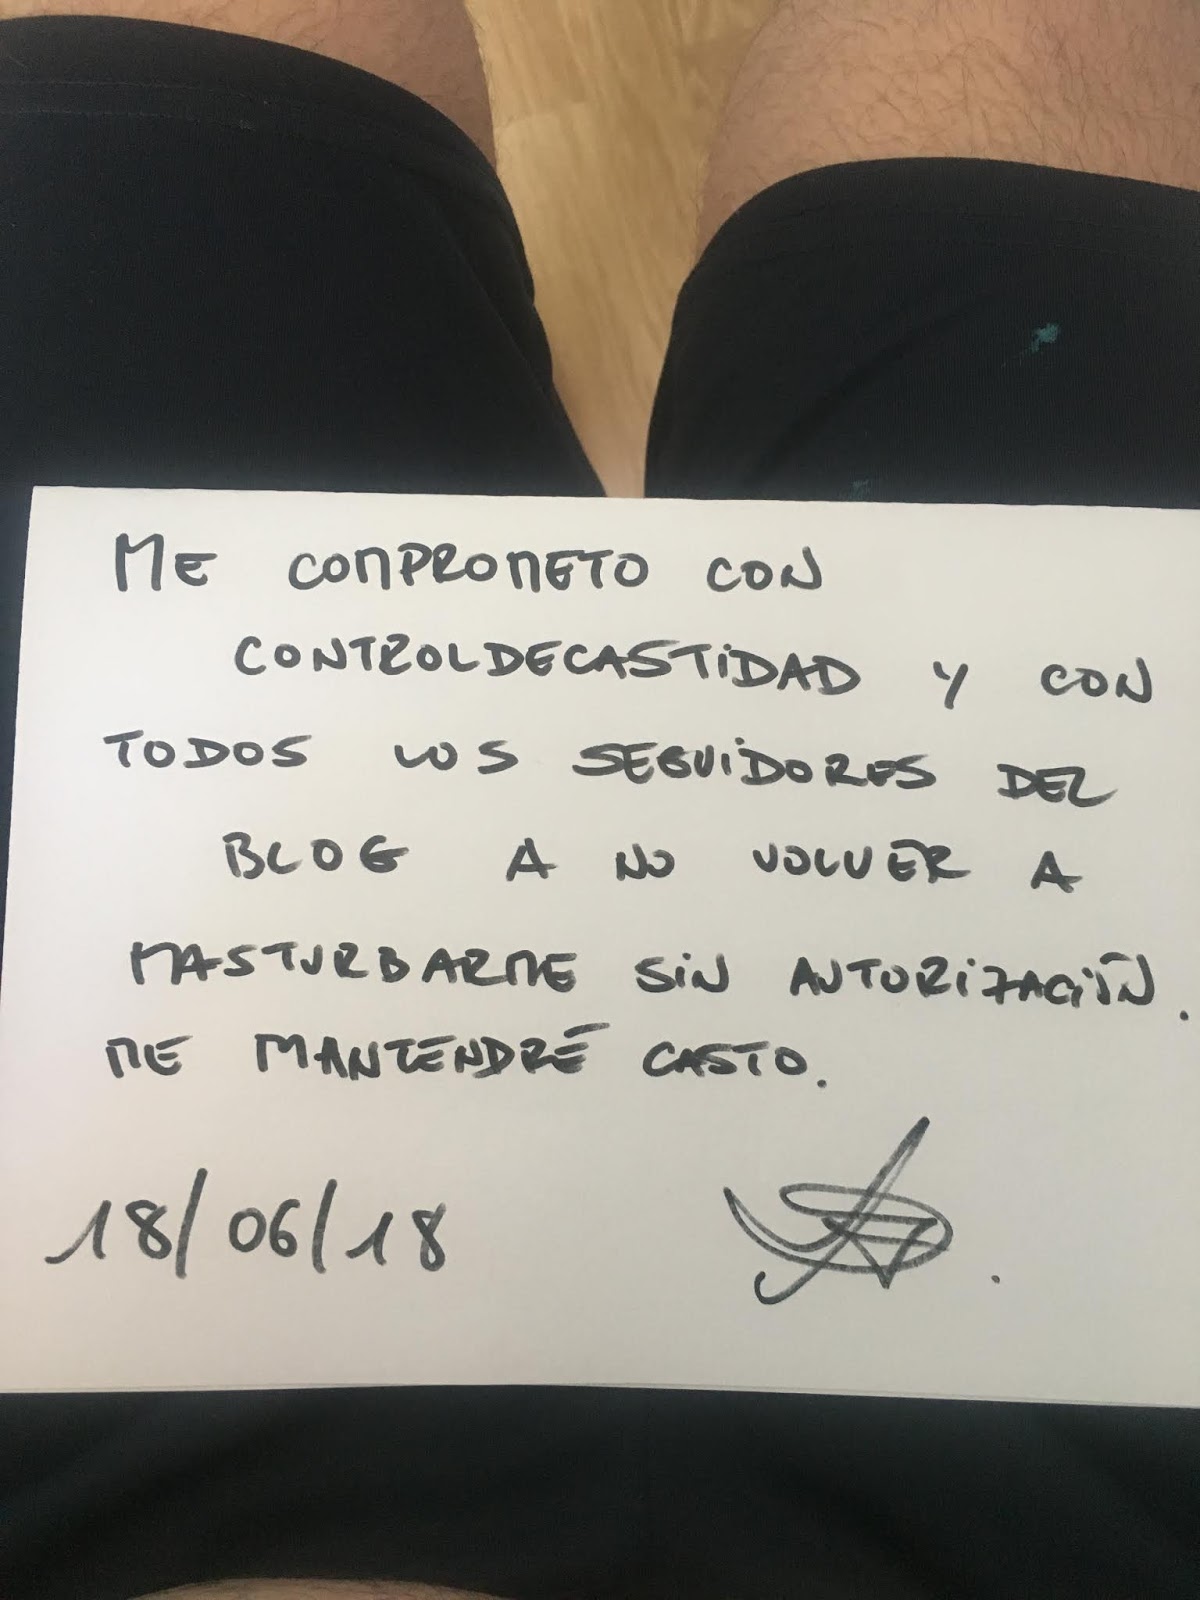 ME COMPROMETO CON
CONTROLDECASTIDAD Y CON
TODOS LOS SEGUIDORES DEL
BLOG A NO VOLVER A
MASTURBARME SIN AUTORIZACIÓN.
ME MANTENDRÉ CASTO.
18/06/18